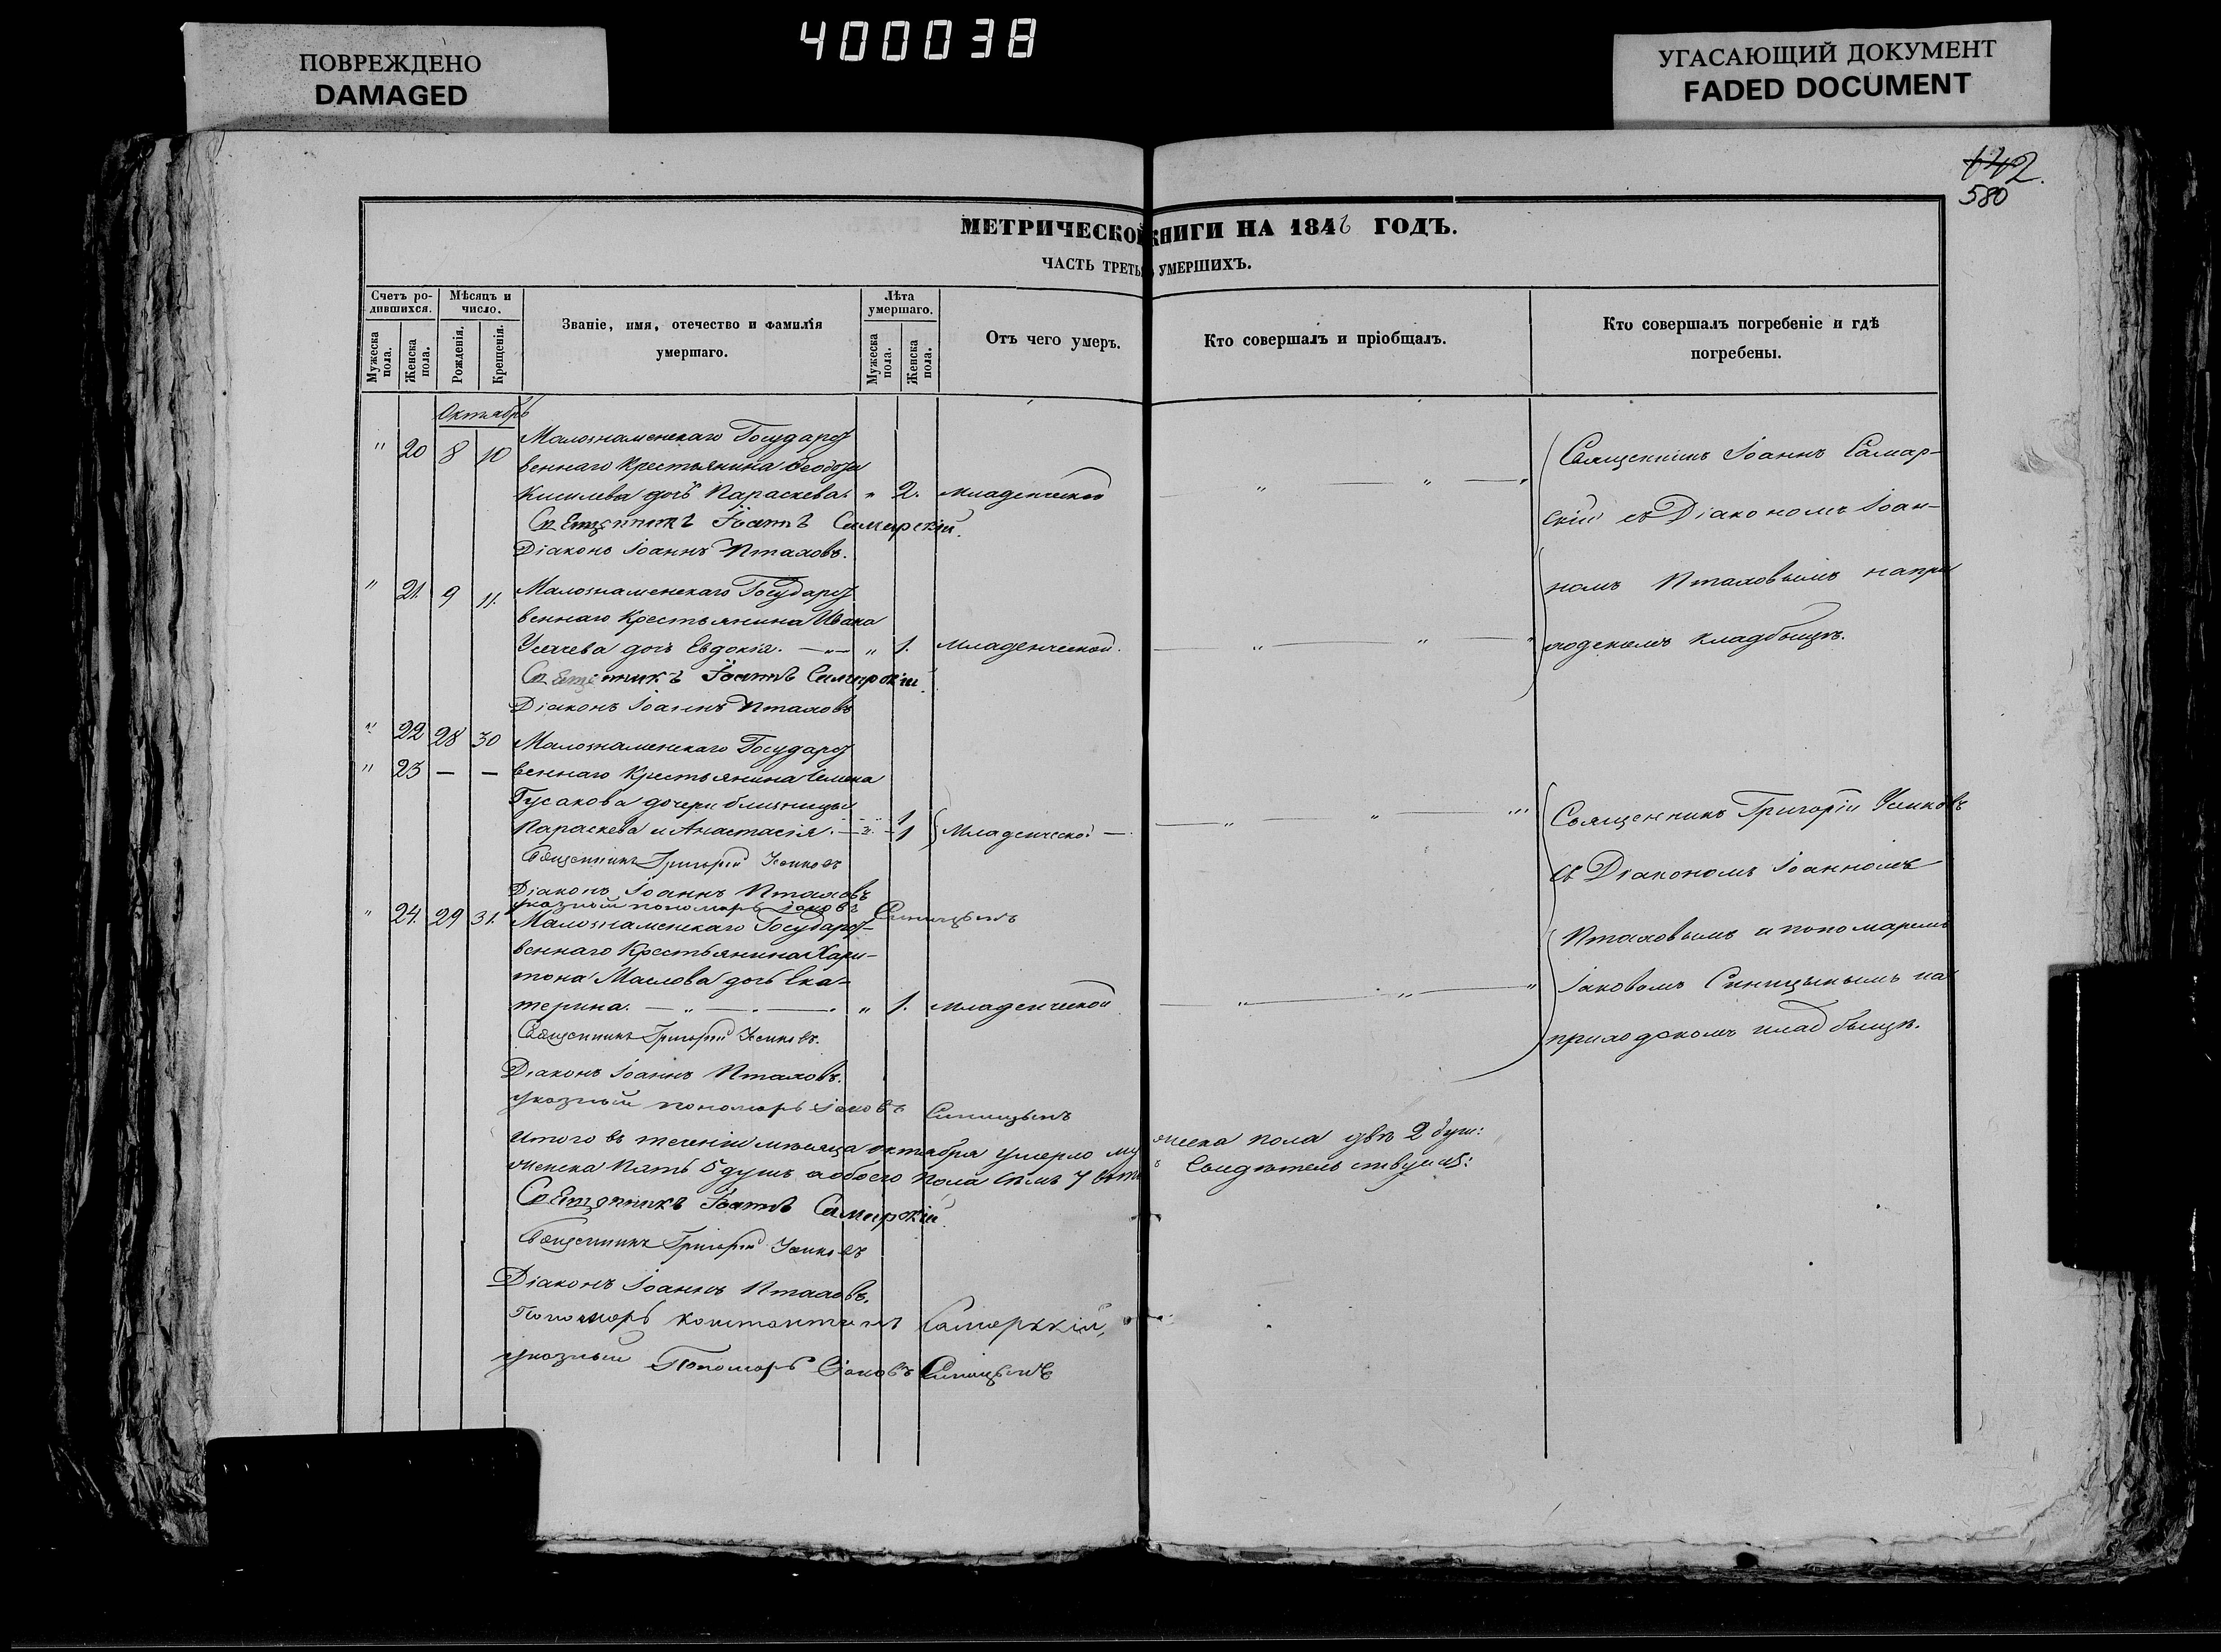 400038
ПОВРЕЖДЕНО
DAMAGED
УГАСАЮЩИЙ ДОКУМЕНТ
FADED DOCUMENT
580
МЕТРИЧЕСКОЙ КНИГИ НА 1846 ГОДЪ.
ЧАСТЬ ТРЕТЬЯ УМЕРШИХЪ.
Счетъ ро-
дившихся.
Мужеска пола.
Женска пола.
Мѣсяцъ и
число.
Рожденія.
Крещенія.
Званіе, имя, отечество и фамилія
умершаго.
Лѣта
умершаго.
Мужеска пола.
Женска пола.
Отъ чего умеръ.
Кто совершалъ и пріобщалъ.
Кто совершалъ погребеніе и гдѣ
погребены.
Октябрь
" 20 8 10 Малознаменскаго Государст
веннаго Крестьянина
Кисилева дочь Параскева. " 2. младенческой
Священникъ Іоаннъ Самарскій.
Діаконъ Іоаннъ Птаховъ.
Священникъ Іоаннъ Самар-
скій съ Діакономъ Іоан-
номъ Птаховымъ на при
ходскомъ кладбищѣ.
" 21. 9 11. Малознаменскаго Государст
веннаго Крестьянина Ивана
Усачева дочь Евдокія. " 1. младенческой.
Священникъ Іоаннъ Самарскій.
Діаконъ Іоаннъ Птаховъ
" 22 28 30 Малознаменскаго Государст
" 23 — — веннаго Крестьянина Семена
Гусакова дочери близницы 1
Параскева и Анастасія. 1 Младенческой
Священникъ Григорій Усиковъ
Діаконъ Іоаннъ Птаховъ
указный пономарь Іаковъ Синицынъ
Священникъ Григорій Усиковъ
съ Діакономъ Іоанномъ
Птаховымъ и пономаремъ
Іаковомъ Синицынымъ на
приходскомъ кладбищѣ.
" 24. 29 31. Малознаменскаго Государст-
веннаго Крестьянина Хари-
тона Маслова дочь Ека-
терина. " 1. младенческой
Священникъ Григорій Усиковъ.
Діаконъ Іоаннъ Птаховъ.
указный пономарь Іаковъ Синицынъ
Итого въ теченіи мѣсяца октября умерло мужеска пола двѣ 2 душ:
женска пять 5 душъ а обоего пола семь 7 Свидѣтельствуемъ:
Священникъ Іоаннъ Самарскій.
Священникъ Григорій Усиковъ
Діаконъ Іоаннъ Птаховъ.
Пономарь Константинъ Самарскій,
указный Пономарь Іаковъ Синицынъ